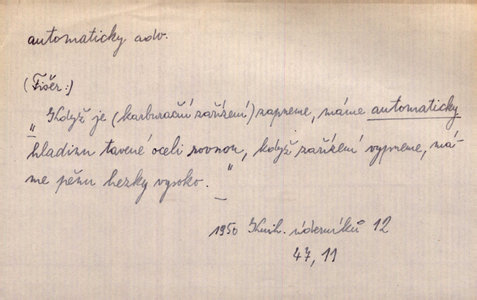 automaticky adv.
(Fišer:)
„Když je (karburační zařízení) zapneme, máme automaticky
hladinu tavené oceli rovnou, když zařízení vypneme, má-
me pěnu hezky vysoko."
1950 Knih. úderníků 12
47, 11